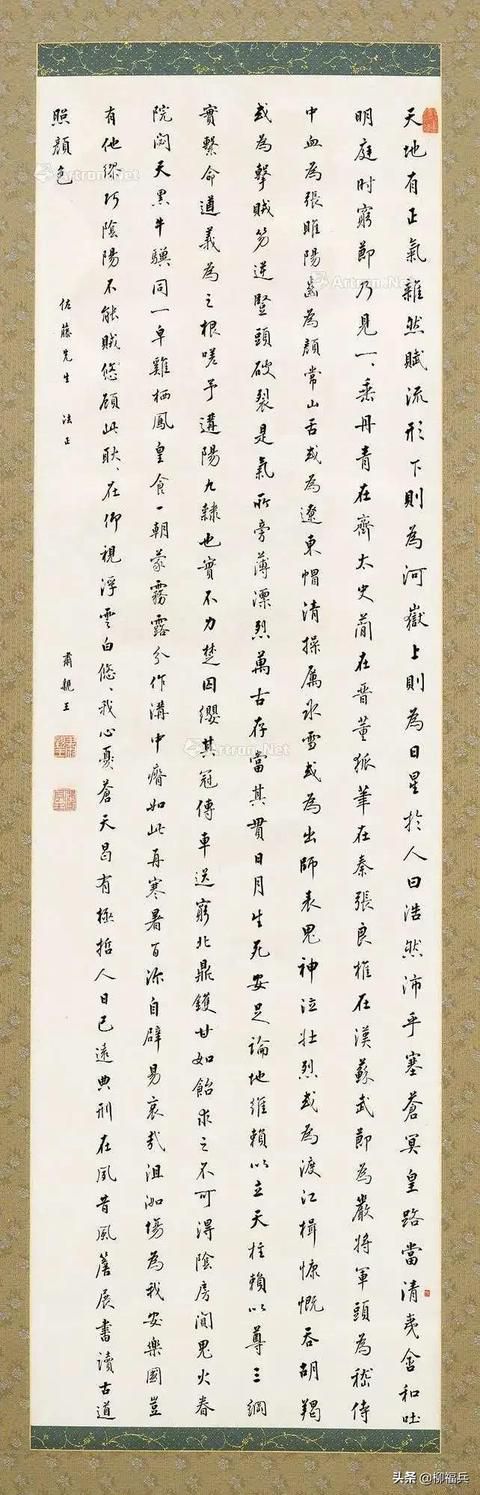 天地有正氣雜然賦流形下則為河嶽上則為日星於人曰浩然沛乎塞蒼冥皇路當清夷含和吐
明庭时窮節乃見一、垂丹青在齊太史簡在晉董狐筆在秦張良椎在漢蘇武節為嚴將軍頭為嵇侍
中血為張睢陽齒為顏常山舌或為遼東帽清操厲冰雪或為出師表鬼神泣壯烈或為渡江楫慷慨吞胡羯
或為擊賊笏逆豎頭破裂是氣所旁薄凛烈萬古存當其貫日月生死安足論地維賴以立天柱賴以尊三綱
實繫命道義為之根嗟予遘陽九隸也實不力楚囚纓其冠傳車送窮北鼎鑊甘如飴求之不可得陰房闃鬼火春
院閟天黑牛驥同一皁雞栖鳳皇食一朝蒙霧露分作溝中瘠如此再寒暑百沴自辟易哀哉沮洳場為我安樂國豈
有他繆巧陰陽不能賊悠顧此耿、在仰視浮雲白悠、我心憂蒼天曷有極哲人日已遠典刑在夙昔風簷展書讀古道
照顏色
佐藤先生 法正
肅親王
Artron.Net
Artron.Net
Artron.Net
头条 @柳福兵